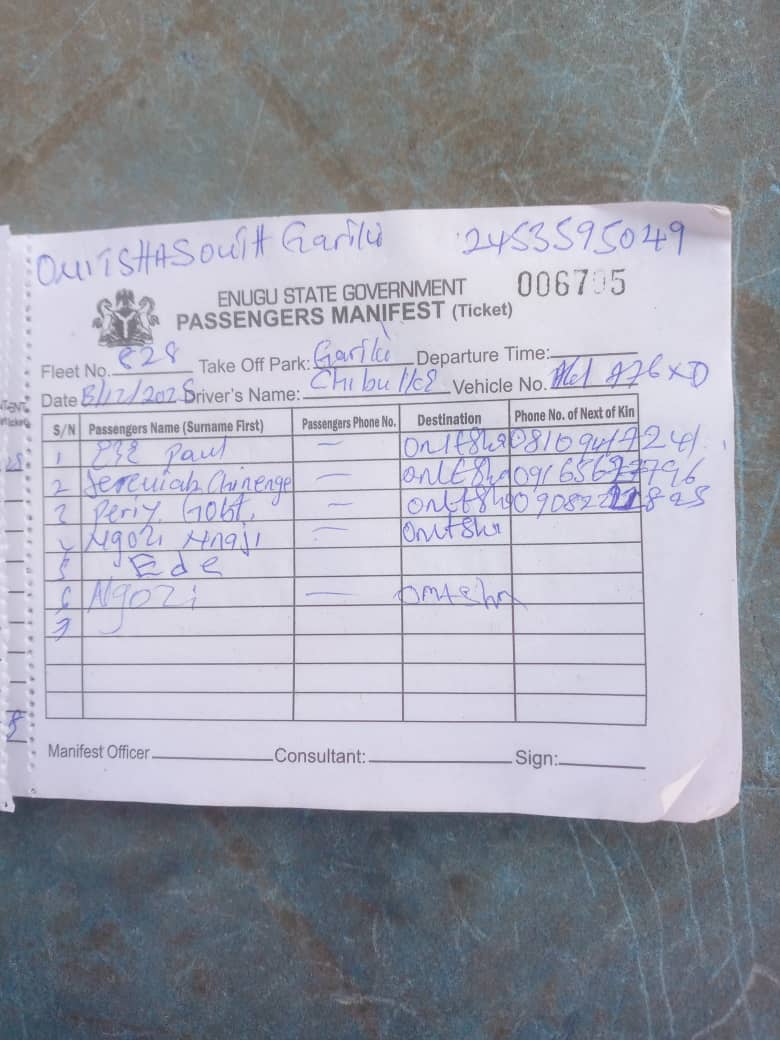 ONITSHA SOUTH Gariki 2453595049
ENUGU STATE GOVERNMENT 006705
PASSENGERS MANIFEST (Ticket)
Fleet No. 828 Take Off Park: Gariki Departure Time:
Date 13/12/2025 Driver's Name: Chibuike Vehicle No. 276 XD
S/N Passengers Name (Surname First) Passengers Phone No. Destination Phone No. of Next of Kin
1 EZE Paul — Onitsha 08109417241
2 Jeremiah Chinenge — Onitsha
3 — Onitsha
4 Ngozi Nnaji — Onitsha
5 Ede
6 Ngozi — Onitsha
7
Manifest Officer Consultant: Sign: